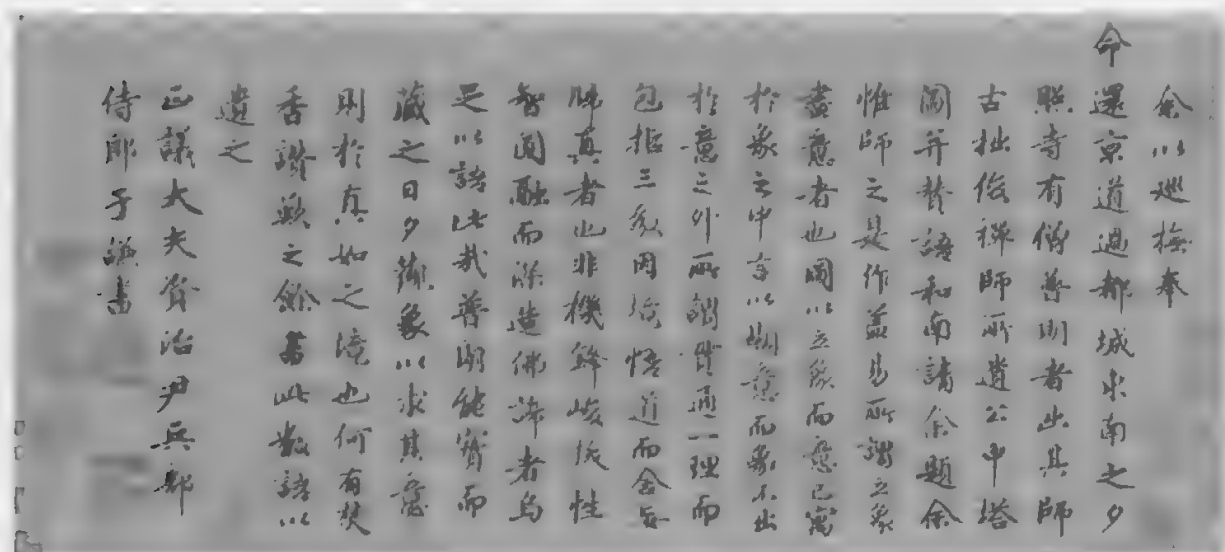 余以巡撫奉
命還京道過都城東南之夕
照寺有僧普明者出其師
古拙俊禪師所遺公中塔
圖并贊語和南請余題余
惟師之是作蓋易所謂立象
盡意者也圖以立象而意已寓
於象之中言以明意而象不出
於意之外所謂貫通一理而
包括三教因該悟道而舍妄
歸真者也非機鋒峻拔性
智圓融而深造佛諦者烏
足以語此哉普明能寶而
藏之日夕觀象以求其意
則於真如之境也何有焚
香讚歎之餘書此數語以
遺之
正議大夫資治尹兵部
侍郎于謙書